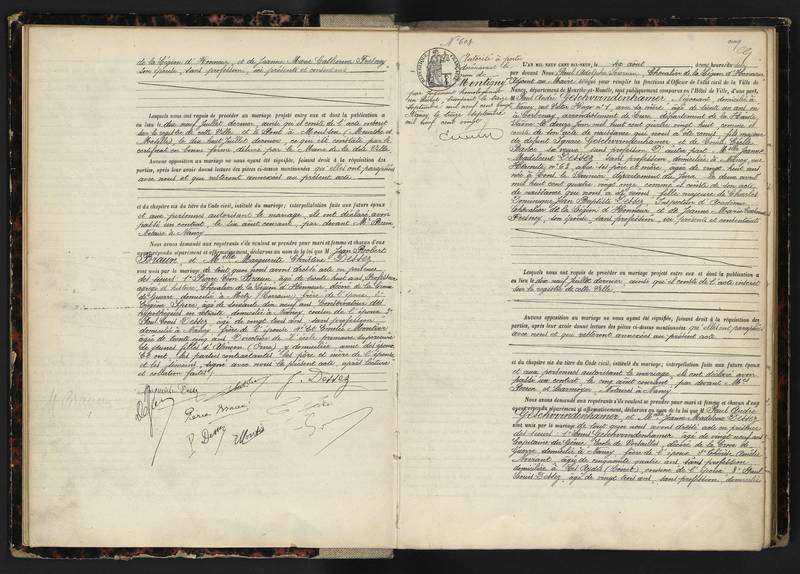 de la Légion d'Honneur, et de Jeanne Marie Catherine Fresney
son épouse, sans profession, ici présents et consentants
Lesquels nous ont requis de procéder au mariage projeté entre eux et dont la publication a
eu lieu le dix neuf Juillet dernier, ainsi qu'il conste de l'acte inséré
sur le registre de cette Ville et à Pont à Mousson (Meurthe et
Moselle) le dix huit Juillet dernier, ce qui est constaté par le
certificat en bonne forme délivré par le Maire de la dite Ville
Aucune opposition au mariage ne nous ayant été signifiée, faisant droit à la réquisition des
parties, après leur avoir donné lecture des pièces ci-dessus mentionnées qu'elles ont paraphées
avec nous et qui resteront annexées au présent acte
et du chapitre six du titre du Code civil, intitulé du mariage; interpellation faite aux futurs époux
et aux personnes autorisant le mariage, ils ont déclaré avoir
passé un contrat, le six août courant, par devant Me
Notaire à Nancy
Nous avons demandé aux requérants s'ils veulent se prendre pour mari et femme et chacun d'eux
ayant répondu séparément et affirmativement, déclarons au nom de la loi que M. Jean Robert
Braun et Melle Marguerite Christine Dessez
sont unis par le mariage de tout quoi avons dressé acte en présence
des sieurs: 1° Pierre Léon Braun, âgé de trente huit ans, Professeur
agrégé d'histoire, Chevalier de la Légion d'Honneur, décoré de la Croix
de Guerre, domicilié à Metz (Lorraine), frère de l'époux, 2°
Eugène Spire, âgé de soixante dix neuf ans, Conservateur des
hypothèques en retraite, domicilié à Nancy, cousin de l'époux, 3°
Paul Louis Dessez, âgé de vingt trois ans, sans profession
domicilié à Nancy, frère de l'épouse, 4° et Emilie Montier
âgée de trente cinq ans, Directrice de l'école primaire supérieure
de jeunes filles d'Alençon (Orne) y domiciliée, amie des époux
et ont les parties contractantes les père et mère de l'épouse
et les témoins, signé avec nous le présent acte, après lecture
et collation faites
J. Dessez
Pierre Braun
P. Dessez
N° 608
Autorisé à porter
dorénavant le
nom de
Montigny
par jugement
septembre mil neuf cent vingt
L'AN MIL NEUF CENT DIX-NEUF, le cinq août
par devant Nous Paul Adolphe, Chevalier de la Légion d'Honneur
Adjoint au Maire, délégué pour remplir les fonctions d'Officier de l'état civil de la Ville de
Nancy, département de Meurthe-et-Moselle, sont publiquement comparus en l'Hôtel de Ville, d'une part,
M. Paul André Geschwindenhammer, Négociant, domicilié à
Nancy, rue Victor Hugo n° 1, avec sa mère, âgé de vingt un ans
né à Corbenay, arrondissement de Lure, département de la Haute
Saône le douze juin mil huit cent quatre vingt huit, comme il
conste de son acte de naissance qui nous a été remis, fils majeur
de défunt Ignace Geschwindenhammer et de
sa veuve, sans profession. D'autre part Melle Jeanne
Madeleine Dessez, sans profession, domiciliée à Nancy, rue
Hermite n° 62, avec ses père et mère, âgée de vingt huit ans
née à Lons le Saunier, département du Jura, le deux avril
mil huit cent quatre vingt onze, comme il conste de son acte
de naissance qui nous a été remis, fille majeure de Charles
Dominique Jean Baptiste Dessez, Inspecteur d'Académie
Chevalier de la Légion d'Honneur et de Jeanne Marie Catherine
Fresney, son épouse, sans profession, ici présents et consentants
Lesquels nous ont requis de procéder au mariage projeté entre eux et dont la publication a
eu lieu le dix neuf Juillet dernier, ainsi qu'il conste de l'acte inséré
sur le registre de cette Ville
Aucune opposition au mariage ne nous ayant été signifiée, faisant droit à la réquisition des
parties, après leur avoir donné lecture des pièces ci-dessus mentionnées qu'elles ont paraphées
avec nous et qui resteront annexées au présent acte
et du chapitre six du titre du Code civil, intitulé du mariage; interpellation faite aux futurs époux
et aux personnes autorisant le mariage, ils ont déclaré avoir
passé un contrat, le cinq août courant, par devant Mes
Notaires à Nancy
Nous avons demandé aux requérants s'ils veulent se prendre pour mari et femme et chacun d'eux
ayant répondu séparément et affirmativement, déclarons au nom de la loi que M. Paul André
Geschwindenhammer et Melle Jeanne Madeleine Dessez
sont unis par le mariage de tout quoi nous avons dressé acte en présence
des sieurs: 1° Louis Geschwindenhammer, âgé de vingt neuf ans
Capitaine du Génie, Ecole de Versailles, décoré de la Croix de
Guerre, domicilié à Nancy, frère de l'époux, 2°
âgé de cinquante quatre ans, sans profession
domicilié à (Loiret), cousin de l'époux 3° Paul
Louis Dessez, âgé de vingt trois ans, sans profession, domicilié